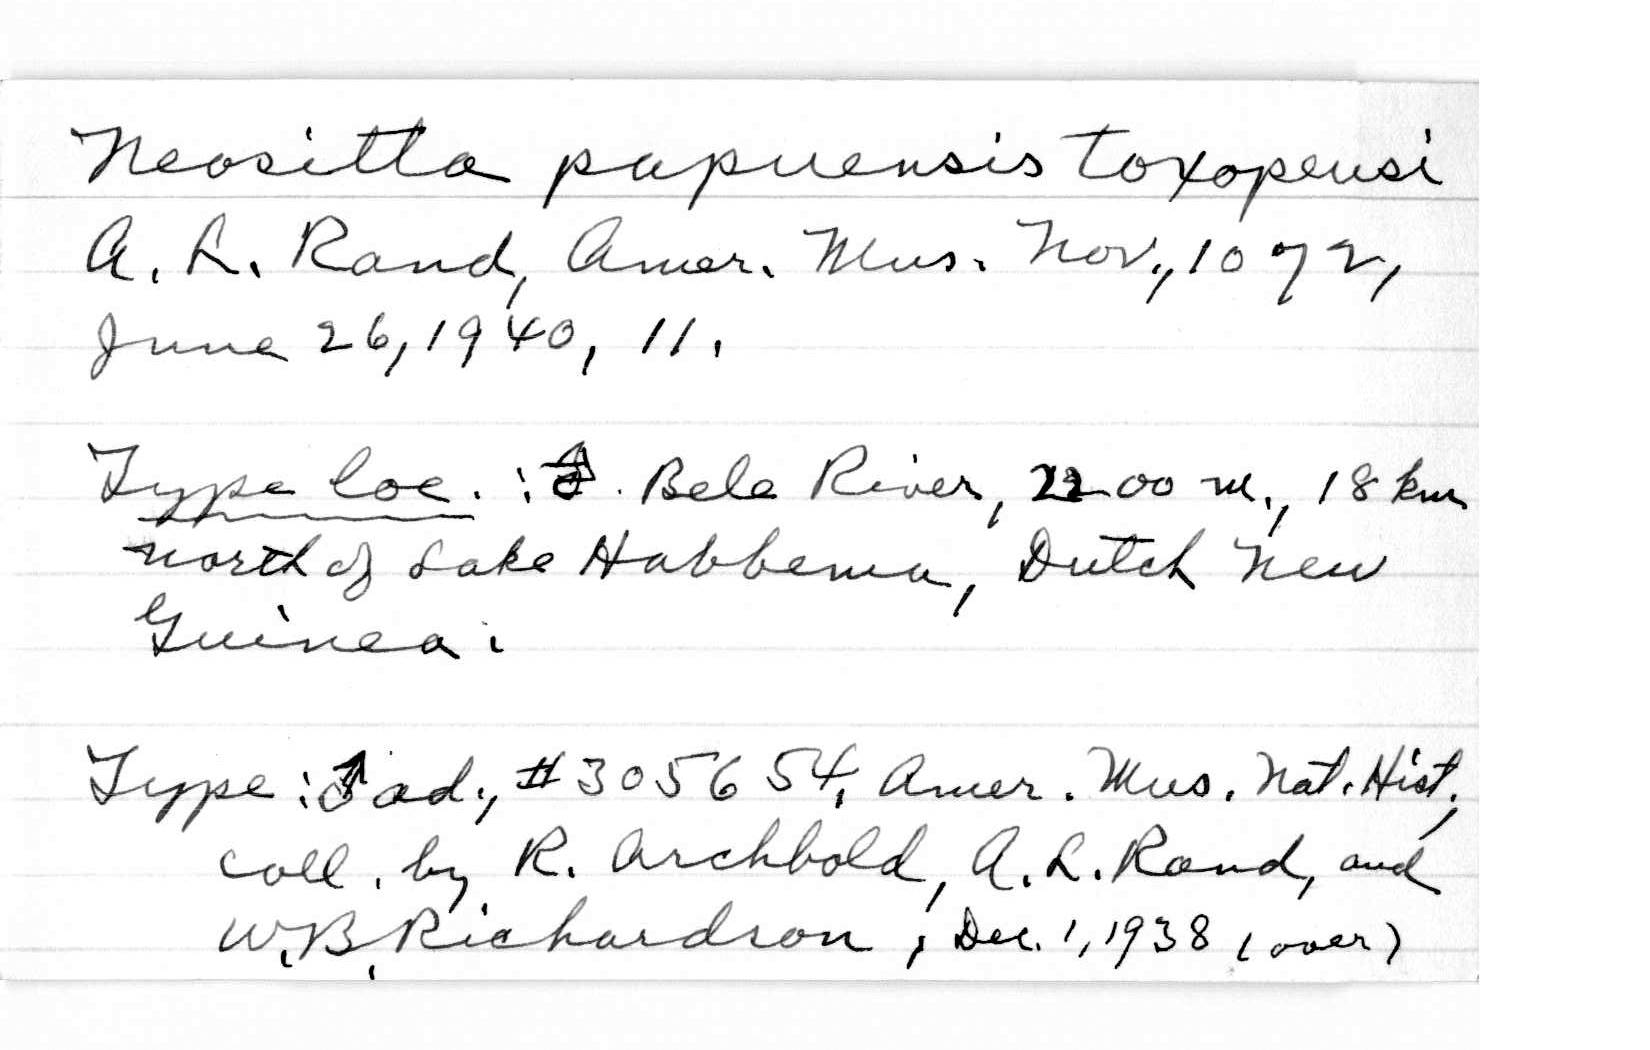 Neositta papuensis toxopeusi
A. L. Rand, Amer. Mus. Nov., 1072,
June 26, 1940, 11.
Type loc. : Bele River, 2200 m., 18 km
north of Lake Habbema, Dutch New
Guinea.
Type : ♂ ad., #305654, Amer. Mus. Nat. Hist.,
coll. by R. Archbold, A. L. Rand, and
W. B. Richardson, Dec. 1, 1938 (over)